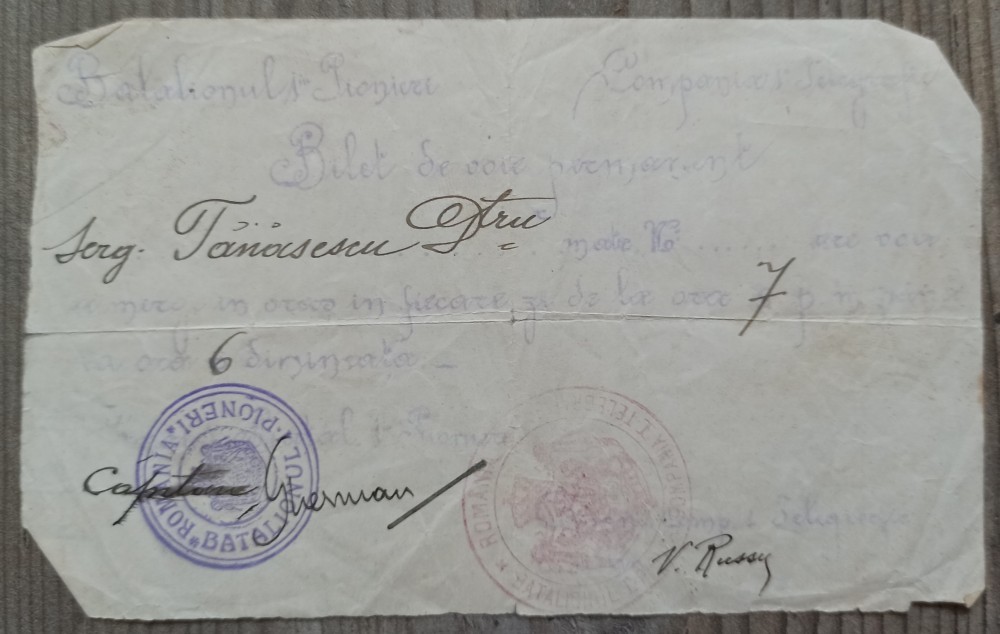 Batalionul 1 Pionieri Compania 1 Telegrafie
Bilet de voie permanent
Serg. Tănăsescu Dtru matr. № ...... are voie
a merge în oraș în fiecare zi de la ora 7 p.m. până
la ora 6 dimineața.
1 Pionieri
* ROMANIA * BATALIONUL PIONERI
Capitan Gherman
ROMANIA
Comp. 1 Telegrafie
V. Russu